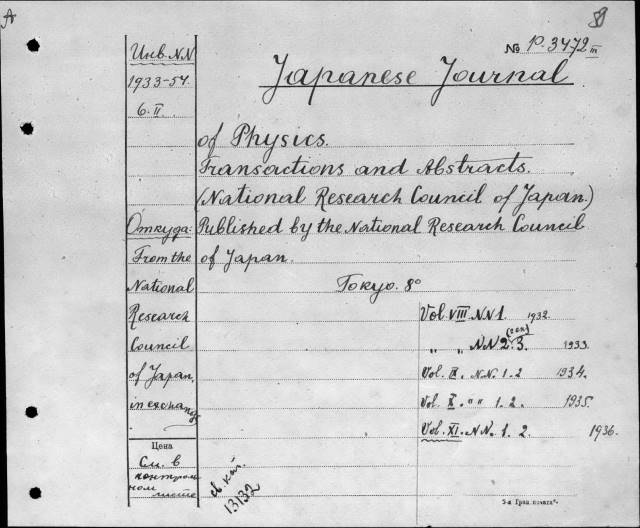 A
№ 10.3472 III
Инв. NN
Japanese Journal
1933-54.
6.II.
of Physics.
Transactions and Abstracts.
(National Research Council of Japan.)
Откуда: Published by the National Research Council
From the of Japan.
National Tokyo. 8°
Research Vol. VIII. NN 1. 1932.
Council " " NN. 2. 3. 1933.
of Japan, Vol. IX. NN. 1. 2 1934.
in exchange Vol. X. "" 1. 2. 1935.
Vol. XI. NN. 1. 2. 1936.
Цена
См. в
контроль
ном
листе
13132
3-я Град печати".